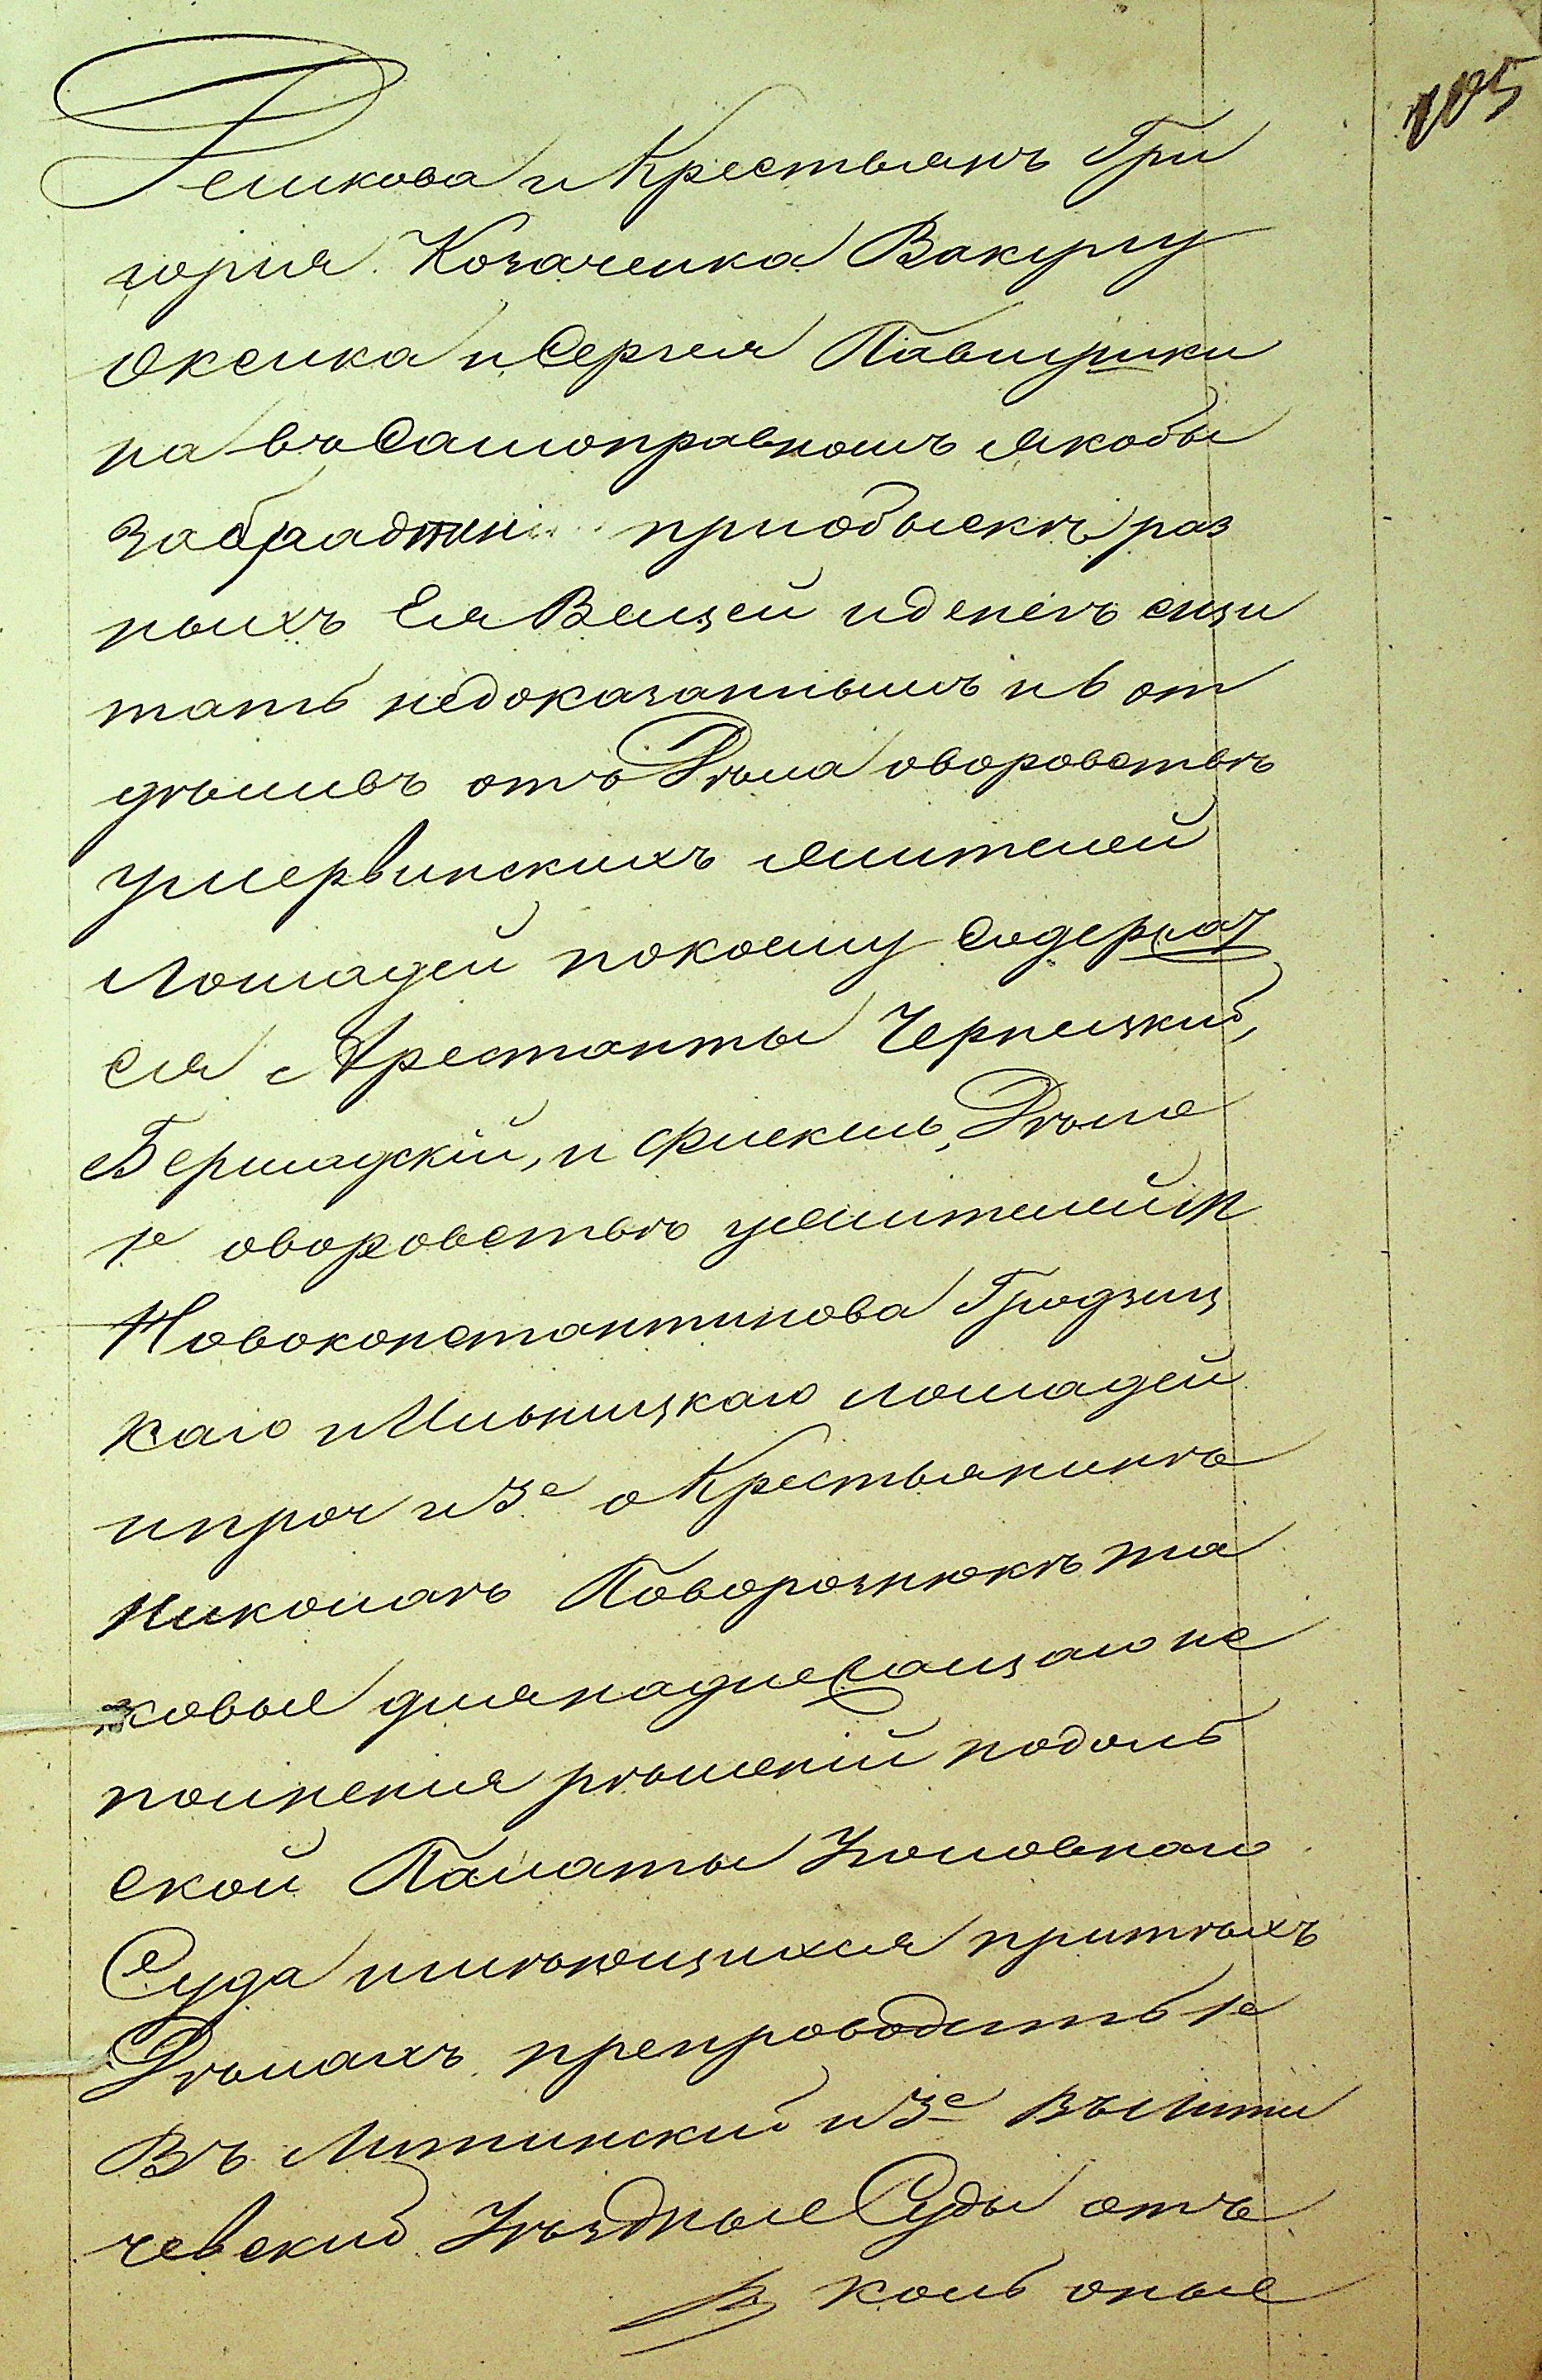 105
Гешкова и Крестьянъ Гри
горія Козаченка Вакулу
Оксика и Сергея Павлушки
на въ Самоправномъ якобы
забра при обыске раз
ныхъ Ея Вещей и денегъ счи
тать недоказаннымъ и 6 от
деливъ отъ Дѣла о воровствѣ
у Мервинскихъ жителей
лошадей по коему Содержат
ся Арестанты Чернецкій,
Бершадскій, и Фискель, Дѣла
1е о воровствѣ у жителей М
Новоконстантинова Гродзиц
каго и Ильницкаго лошадей
и проч и 3е о Крестьянинѣ
Николаѣ Поворознюкѣ та
ковые для надлежащаго ис
полненія рѣшеній подоль
ской Палаты Уголовнаго
Суда имѣющихся при тѣхъ
Дѣлахъ препроводить 1е
Въ Литинскій и 3е Въ Лети
чевскій Уѣздные Суды отъ
коль оные